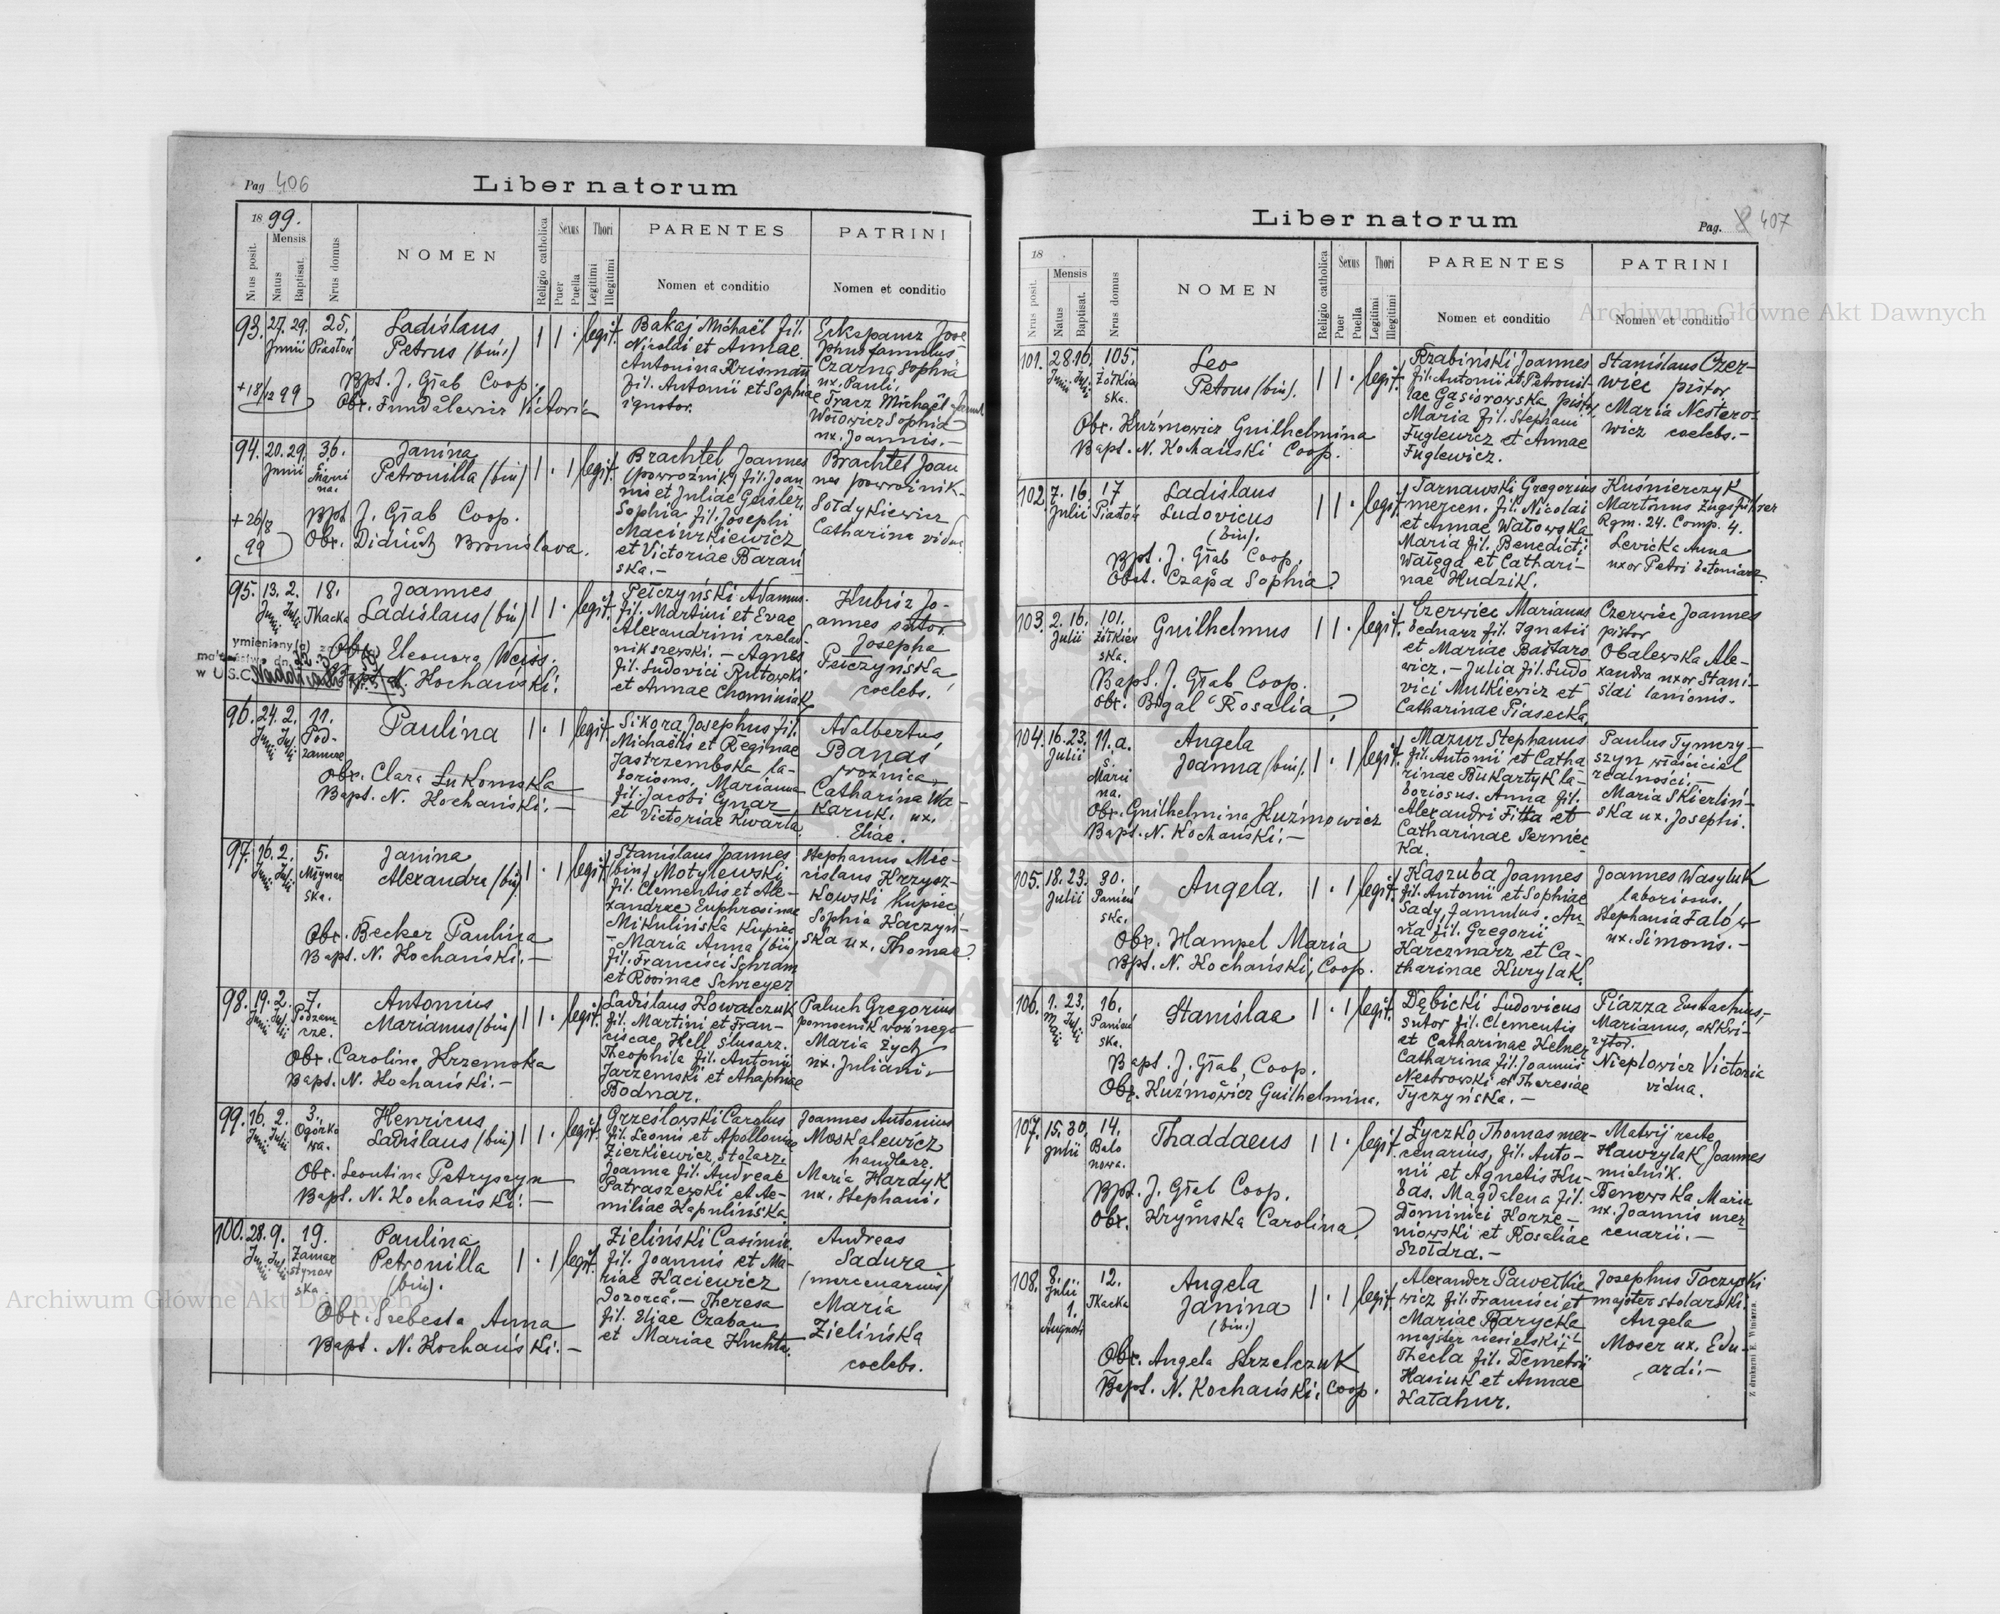 Pag 406
Liber natorum
1899.
Nrus posit.
Mensis
Natus
Baptisat.
Nrus domus
NOMEN
Religio catholica
Sexus
Puer
Puella
Thori
Legitimi
Illegitimi
PARENTES
Nomen et conditio
PATRINI
Nomen et conditio
93. 27. 29. 25.
Junii Piastów
Ladislaus
Petrus (bin.)
1 1 . legit.
Bpt. J. Grab Coop.
Obx. Victoria
+18/12 99
Bakaj Michaël fil.
Nicolai et Annae.
Antonina
fil. Antonii et Sophiae
ignotor.
Josephus famulus
Czarna Sophia
ux. Pauli,
Tracz Michaël famul.
Wołowicz Sophia
ux. Joannis.-
94. 20. 29. 36.
Junii
Janina
Petronilla (bin)
1 . 1 legit.
+26/8
99
Bpt. J. Grab Coop.
Obx. Diduch Bronislava.
Brachtel Joannes
(powroźnik) fil. Joan-
nis et Juliae Geisler,
Sophia fil. Josephi
Maciurkiewicz
et Victoriae Barań-
ska.-
Brachtel Joan
nes powroźnik-
Sołdykiewicz
Catharina vidua
95. 13. 2. 18.
Junii Julii Tkacka
Joannes
Ladislaus (bin)
1 1 . legit.
Obx. Eleonora Weiss.
Bapt. N. Kochański.
Pełczyński Adamus
fil. Martini et Evae
Alexandrini czelad-
nik szewski. - Agnes
fil. Ludovici Rutowski
et Annae Chominiak
Kubisz Jo-
annes sutor.
Josepha
Pełczyńska
coelebs.
96. 24. 2. 11.
Junii Julii Pod-
zamcze
Paulina
1 . 1 legit.
Obx. Clara Łukomska
Bapt. N. Kochański. -
Sikora Josephus fil.
Michaëlis et Reginae
Jastrzembska la-
boriosus, Marianna
fil. Jacobi Cynar
et Victoriae Kwarta.
Adalbertus
Banaś
woźnica,
Catharina Wa-
karuk. ux.
Eliae.
97. 16. 2. 5.
Junii Julii Młynar
ska.
Janina
Alexandra (bin)
1 . 1 legit.
Obx. Becker Paulina
Bapt. N. Kochański. -
Stanislaus Joannes
(bin) Motylewski
fil. Clementis et Ale-
xandrae Euphrosinae
Mikulińska kupiec
- Maria Anna (bin)
fil. Francisci Schram
et Rosinae Schreyer
Stephanus Mie-
cislaus Krzysz-
kowski kupiec
Sophia Kaczyń-
ska ux. Thomae
98. 19. 2. 7.
Junii Julii Podzam-
cze.
Antonius
Marianus (bin)
1 1 . legit.
Obx. Carolina Krzemska
Bapt. N. Kochański. -
Ladislaus Kowalczuk
fil. Martini et Fran-
ciscae Hell ślusarz.
Theophila fil. Antonii
Jarzemski et Ahaphiae
Bodnar.
Paluch Gregorius
pomocnik woźnego
Maria Zych
ux. Juliani.
99. 16. 2. 3.
Junii Julii Ogórko
wa.
Henricus
Ladislaus (bin)
1 1 . legit.
Obx. Leontina Petryszyn
Bapt. N. Kochański. -
Grzesłowski Carolus
fil. Leonis et Apolloniae
Zierkiewicz, stolarz.
Joanna fil. Andreae
Patraszewski et Ae-
miliae Kapulińska.
Joannes Antonius
Moskalewicz
handlarz.
Maria Hardyk
ux. Stephani.
100. 28. 9. 19.
Junii Julii Zamar
stynow
ska
Paulina
Petronilla
(bin).
1 . 1 legit.
Obx. Srebesta Anna
Bapt. N. Kochański. -
Zieliński Casimir.
fil. Joannis et Ma-
riae Haciewicz
dozorca. - Theresa
fil. Eliae Czaban
et Mariae Kuchta.
Andreas
Sadura
(mercenarius)
Maria
Zielińska
coelebs.
Liber natorum
Pag. 407
18
Nrus posit.
Mensis
Natus
Baptisat.
Nrus domus
NOMEN
Religio catholica
Sexus
Puer
Puella
Thori
Legitimi
Illegitimi
PARENTES
Nomen et conditio
PATRINI
Nomen et conditio
101. 28. 16. 105.
Junii Julii Żółkiew
ska.
Leo
Petrus (bin).
1 1 . legit.
Obx. Kuźmowicz Guilhelmina
Bapt. N. Kochański Coop.
Rzabiński Joannes
fil. Antonii et Petronil-
lae Gąsiorowska pistor,
Maria fil. Stephani
Fuglewicz et Annae
Fuglewicz.
Stanislaus Czer-
wiec pistor,
Maria Nestero-
wicz coelebs.-
102. 7. 16. 17
Julii Piastów
Ladislaus
Ludovicus
(bin).
1 1 . legit.
Bpt. J. Grab Coop.
Obst. Czapa Sophia
Tarnawski Gregorius
mercen. fil. Nicolai
et Annae Watowska
Maria fil. Benedicti
Watęga et Cathari-
nae Hudzik.
Kuśnierczyk
Martinus Zugsführer
Rgm. 24. Comp. 4.
Levicka Anna
uxor Petri betoniarz.
103. 2. 16. 101.
Julii Żółkiew
ska.
Guilhelmus
1 1 . legit.
Bapt. J. Grab Coop.
Obx. Bigal Rosalia
Czerwiec Marianus
bednarz fil. Ignatii
et Mariae Bałtaro
wicz. - Julia fil. Ludo
vici Mulkiewicz et
Catharinae Piasecka.
Czerwiec Joannes
pistor
Obalewska Ale-
xandra uxor Stani-
slai lanionis.-
104. 16. 23. 11.a.
Julii Ś.
Marci
na.
Angela
Joanna (bin).
1 . 1 legit.
Obx. Guilhelmina Kuźmowicz
Bapt. N. Kochański. -
Mazur Stephanus
fil. Antonii et Catha
rinae Bukartyk la-
boriosus. Anna fil.
Alexandri Fitta et
Catharinae Sernec
ka.
Paulus Tymczy-
szyn właściciel
realności. -
Maria Skierliń-
ska ux. Josephi.
105. 18. 23. 30.
Julii Panień
ska.
Angela.
1 . 1 legit.
Obx. Hampel Maria
Bpt. N. Kochański, Coop.
Kaszuba Joannes
fil. Antonii et Sophiae
Sady, famulus. An-
na fil. Gregorii
Karczmarz et Ca-
tharinae Kurylak.
Joannes Wasyluk
laboriosus.
Stephania Falów
ux. Simonis.-
106. 1. 23. 16.
Maji Julii Panień
ska.
Stanislaa
1 . 1 legit.
Bapt. J. Grab, Coop.
Obx. Kuźmowicz Guilhelmina.
Dębicki Ludovicus
sutor fil. Clementis
et Catharinae Kelner
Catharina fil. Joannis
Nestrowski et Theresiae
Tyczyńska. -
Piazza Eustachius,
Marianus, akkwi-
zytor.
Nieplowicz Victoria
vidua.
107. 15. 30. 14.
Julii Balo
nowa.
Thaddaeus
1 1 . legit.
Bpt. J. Grab Coop.
Obx. Krymska Carolina
Łyczko Thomas mer-
cenarius, fil. Anto-
nii et Agnetis Ku-
bas. Magdalena fil.
Dominici Korze-
niowski et Rosaliae
Szołdra.-
Matwij recte
Hawrylak Joannes
mielnik.
Benowska Maria
ux. Joannis mer-
cenarii. -
108. 8. 12.
Julii Tkacka
1.
Augusti
Angela
Janina
(bin.)
1 . 1 legit.
Obx. Angela Strzelczuk
Bapt. N. Kochański. Coop.
Alexander Pawełkie
wicz fil. Francisci et
Mariae Barycka
majster ciesielski,
Thecla fil. Demetrii
Hasiuk et Annae
Kałahur.
Josephus Toczyski
majster stolarski.
Angela
Moser ux. Edu-
ardi. -
Z drukarni E. Winiarza.
Archiwum Główne Akt Dawnych
Archiwum Główne Akt Dawnych